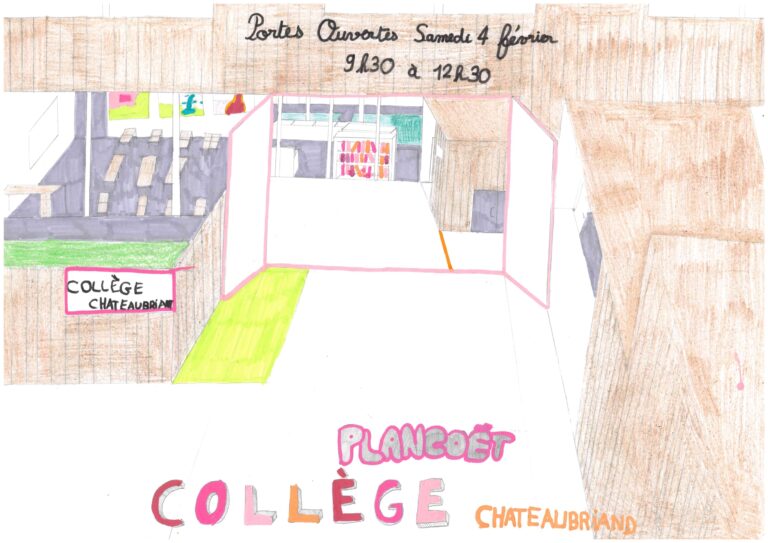 Portes Ouvertes Samedi 4 février
9h30 à 12h30
COLLÈGE
CHATEAUBRIANT
PLANCOËT
COLLÈGE CHATEAUBRIAND